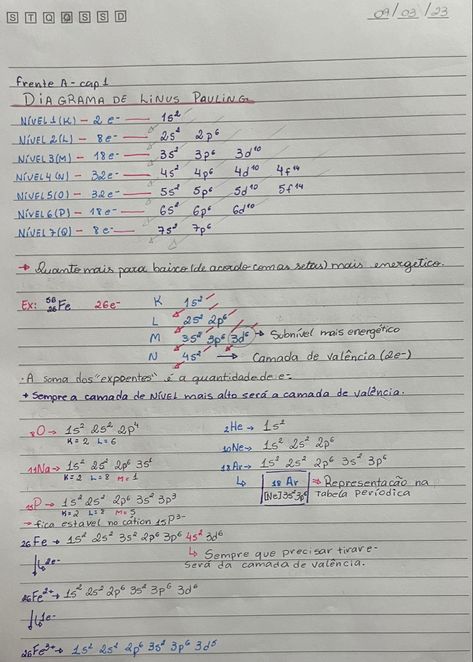 S T Q Q S S D 09/03/23
Frente A - cap 1
DIAGRAMA DE LINUS PAULING
NÍVEL 1 (K) - 2 e- — 1s²
NÍVEL 2 (L) - 8 e- — 2s² 2p⁶
NÍVEL 3 (M) - 18 e- — 3s² 3p⁶ 3d¹⁰
NÍVEL 4 (N) - 32 e- — 4s² 4p⁶ 4d¹⁰ 4f¹⁴
NÍVEL 5 (O) - 32 e- — 5s² 5p⁶ 5d¹⁰ 5f¹⁴
NÍVEL 6 (P) - 18 e- — 6s² 6p⁶ 6d¹⁰
NÍVEL 7 (Q) - 8 e- — 7s² 7p⁶
→ Quanto mais para baixo (de acordo com as setas) mais energético.
Ex: ⁵⁶₂₆Fe 26e- K 1s²
L 2s² 2p⁶
M 3s² 3p⁶ 3d⁶ → Subnível mais energético
N 4s² → Camada de valência (2e-)
· A soma dos "expoentes" é a quantidade de e-
→ Sempre a camada de NÍVEL mais alto será a camada de valência.
₈O → 1s² 2s² 2p⁴
K=2 L=6
₂He → 1s²
₁₀Ne → 1s² 2s² 2p⁶
₁₁Na → 1s² 2s² 2p⁶ 3s¹
K=2 L=8 M=1
₁₈Ar → 1s² 2s² 2p⁶ 3s² 3p⁶
↳ ₁₈Ar ⇒ Representação na
[Ne] 3s² 3p⁶ tabela periódica
₁₅P → 1s² 2s² 2p⁶ 3s² 3p³
K=2 L=8 M=5
→ fica estavel no cation ₁₅P³⁻
₂₆Fe → 1s² 2s² 3s² 2p⁶ 3p⁶ 4s² 3d⁶
↓ 2e- ↳ Sempre que precisar tirar e-
será da camada de valência.
₂₆Fe²⁺ → 1s² 2s² 2p⁶ 3s² 3p⁶ 3d⁶
↓ 1e-
₂₆Fe³⁺ → 1s² 2s² 2p⁶ 3s² 3p⁶ 3d⁵